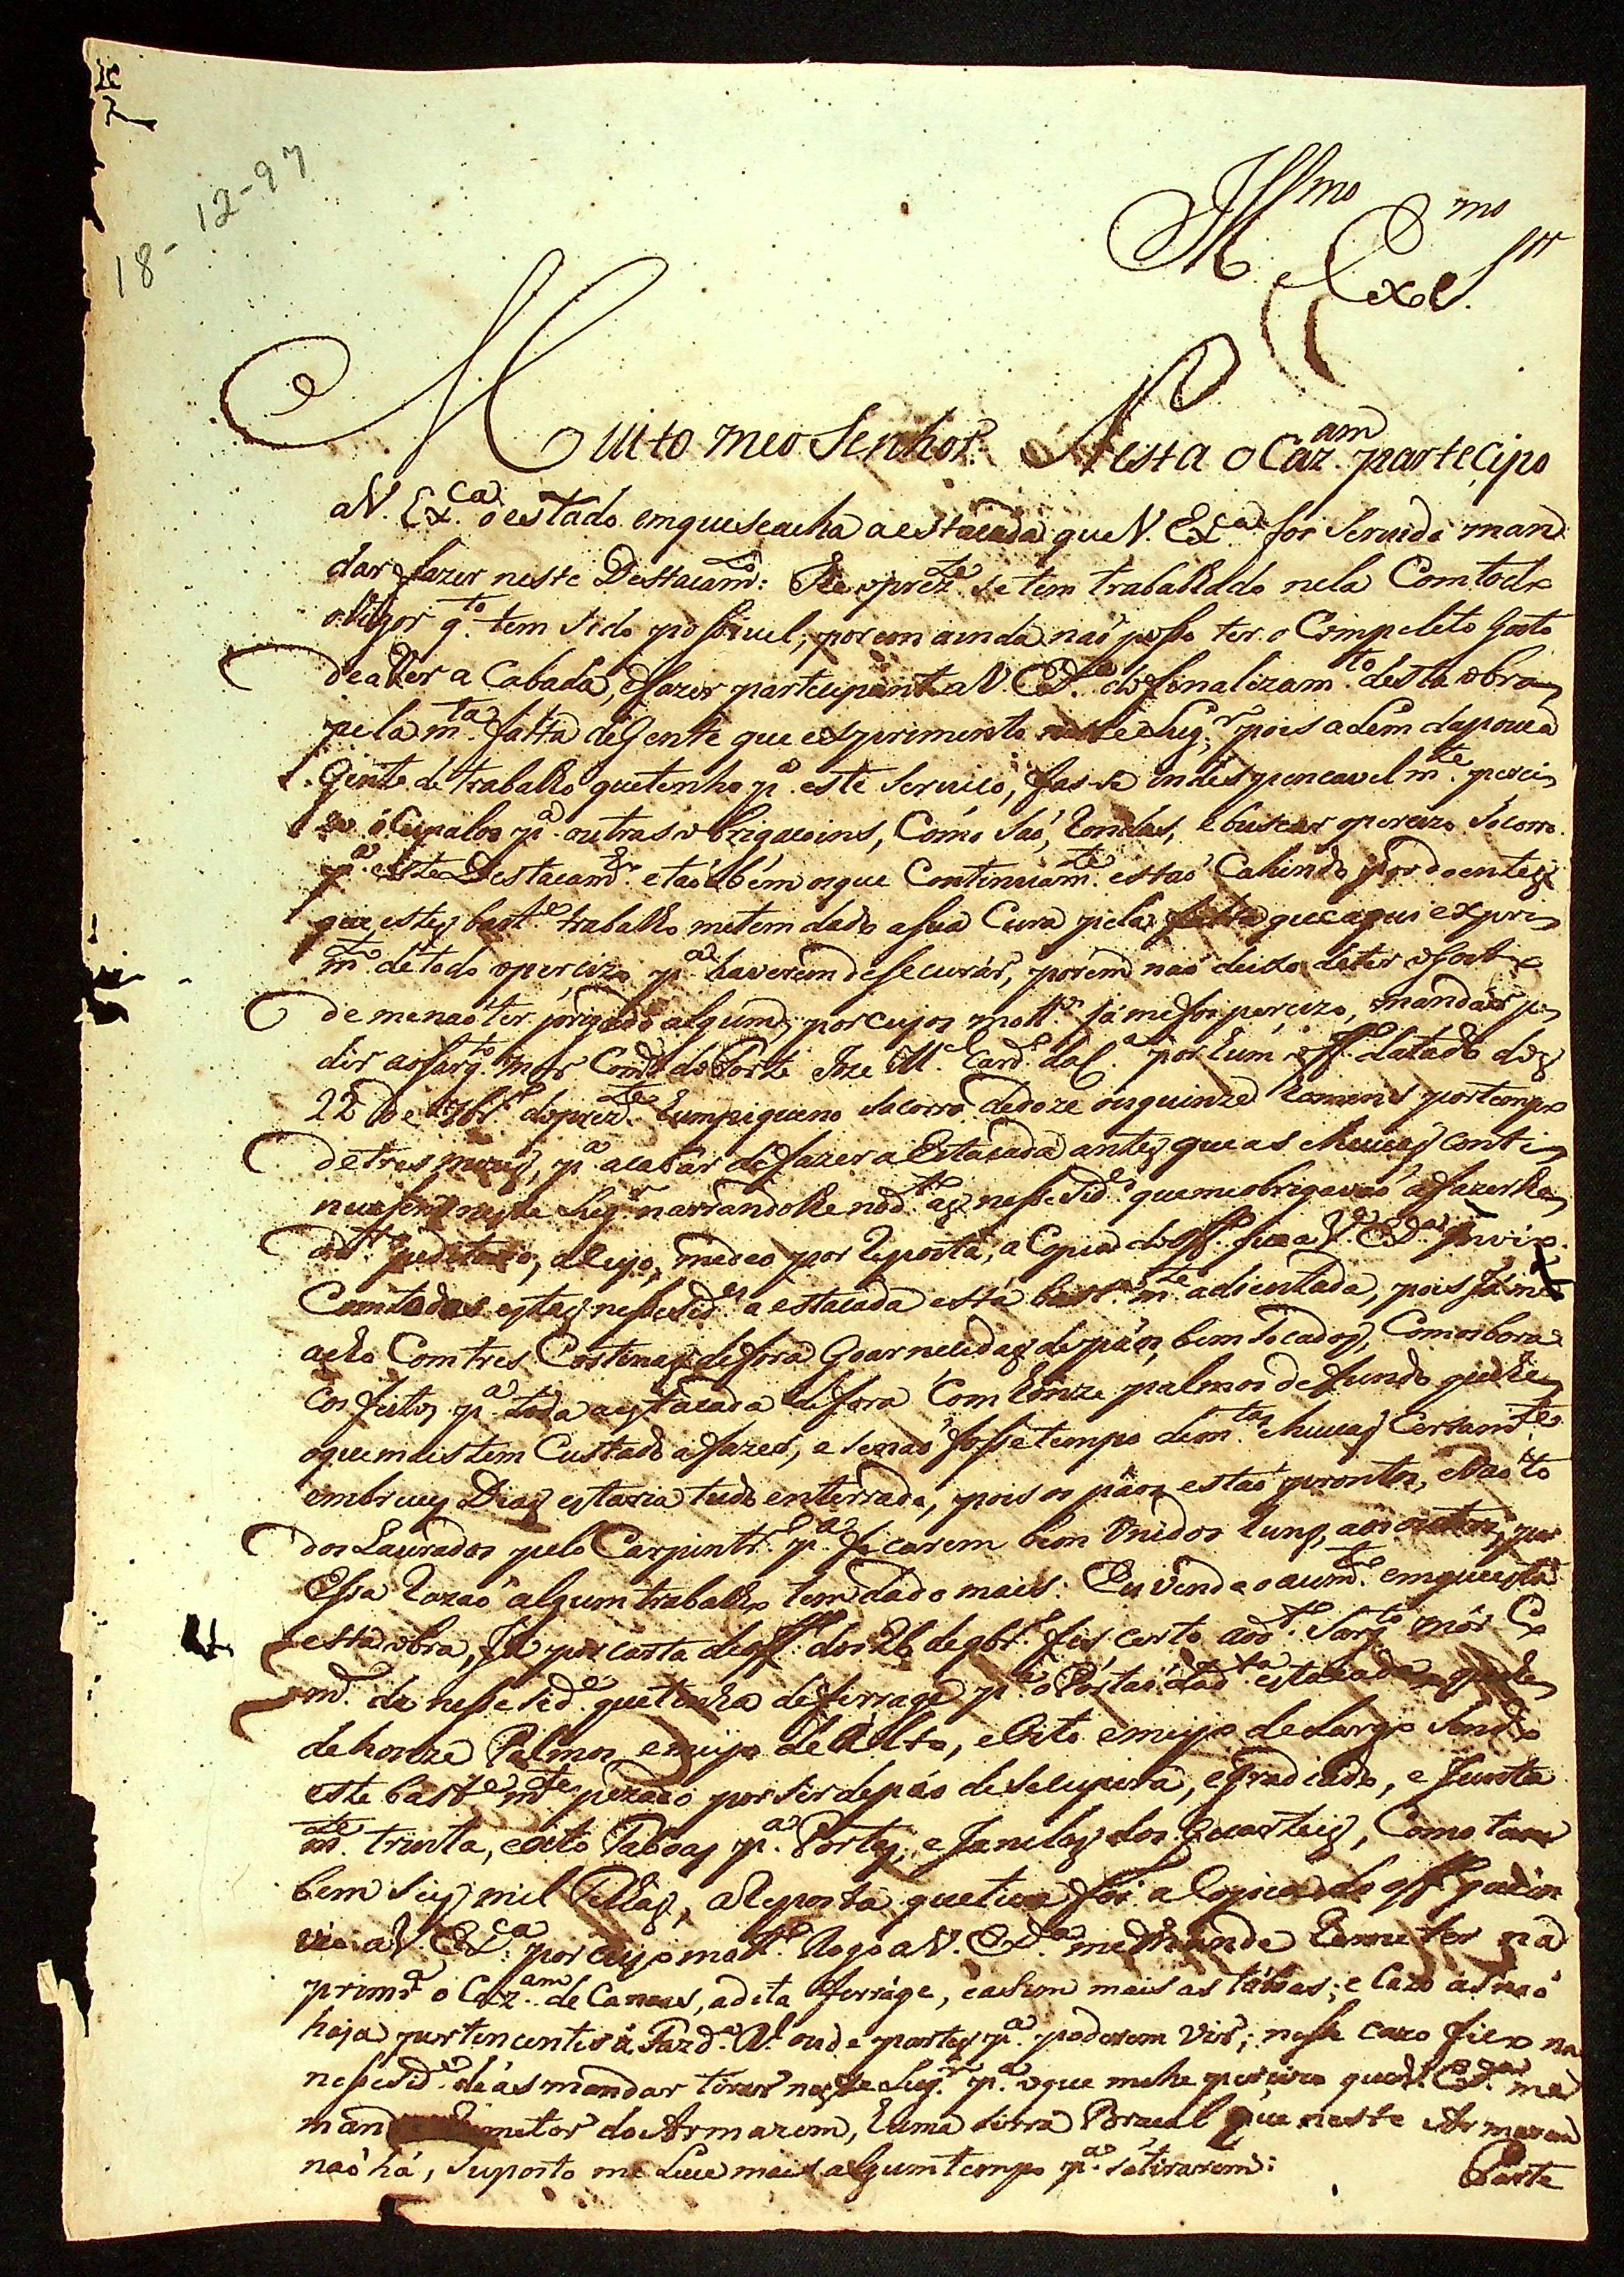 18-12-97
Ill.mo e Ex.mo Sr.
Muito meo Senhor. Nesta o Caz.am partecipo
a V. Ex.ca o estado em que se acha a estacada que V. Ex.ca foi servido man
dar fazer neste Destacam.to: The o prez.te se tem trabalhado nela Com todo
o Vigor q.to tem sido possivel; porem ainda naõ posso ter o Completo Gosto
de a Ver a Cabada, e fazer partecipante a V. Ex.ca do finalizam.to desta obra
pela m.ta falta de Gente que exprimento neste Lug.r, pois alem da pouca
Gente de trabalho que tenho p.a este servico, fas-se indespencavelm.te perci
zo ócupalos p.a outras obrigacoins, Cómo saó, Rondas, e buscar o percizo socorro
p.a este Destacam.to e taõ bem os que Continuam.te estaó Cahindo por doentes
que estes bast.e trabalho me tem dado a sua Cura pela falta que aqui expri
m.to de todo o percizo p.a haverem de se curár, porém naõ deixo de ter o Gosto
de me naó ter perigado algum, por cujos mott.os já me foi percizo, mandar pe
dir ao Sarg.to mor Com.de do Forte Joze M.el Card.o da C.a por hum off.o datado dos
22 de 9br.o do prez.te hum piqueno socorro de doze ou quinze homens por tempo
de tres mezes, p.a acabár de fazer a Estacada antes que as chuvas conti
nuasem neste Lug.r narrandolhe no d.to as nessesid.es que me obrigavaõ a fazer lhe
o d.to peditorio, a cujo, me deo por reposta, a Copia do off.o que a V. Ex.ca invio.
Com todas estas nessesid.es a estacada está bast.em.te adientada, pois já me
acho Com tres Cortinas de fora Goarnecidas de páos, bem Socados, Com os bora
cos feitos p.a toda a estacada de fora Com honze palmos de fundo que he
o que mais tem Custado a fazer, e se naõ fosse tempo de m.tas chuvas Certam.te
em breves Dias estaria tudo enterrado, pois os páos estaó prontos, e Vaõ to
dos Laurados pelo Carpintr.o p.a ficarem bem Unidos huns, aos outros, por
Essa Razaõ algum trabalho tem dado mais: Eu vendo o aum.to em que está
esta obra, Já por carta de off.o dos 26 de 9br.o fis certo ao d.to Sarg.to mór Co
m.de da nessesid.e que tinha de ferrage p.a o Portaõ da d.ta estacada
de honze Palmos e meyo de Alto, e Oito e meyo de Largo sendo
este bast.em.te pezado por ser de páo de secupira, e Gradeado, e Junta
m.te trinta, e oito Taboas p.a Portas, e Janelas dos Quarteis, Como tam
bem seis mil Telhas, a Reposta que tive foi a Copia do off.o que in
vio a V. Ex.ca: por cujo mott.o Rogo a V. Ex.ca me Mande Remeter na
prim.ra o Caz.am de Canoas, a dita ferráge, e asim mais as táboas; e Cazo as naó
haja pertencentes á Fazd.a R.l ou de partes p.a poderem Vir; nesse cazo fico na
nessesid.e de ás mandar tirar neste Lug.r p.a o que me he percizo que V. Ex.ca me
mande Remeter do Armazem, huma serra Braçal que neste Armazem
naõ há, suposto me Leve mais algum tempo p.a se tirarem:
Parte